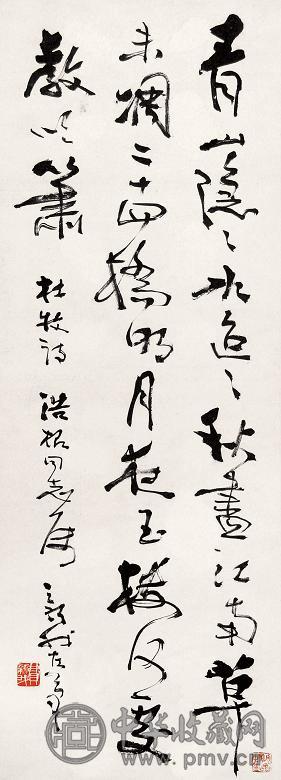 青山隱々水迢々秋盡江南草
未凋二十四橋明月夜玉樓何處
教吹簫
杜牧诗 浩振同志属
新我左筆
中华收藏网
www.pmv.cn